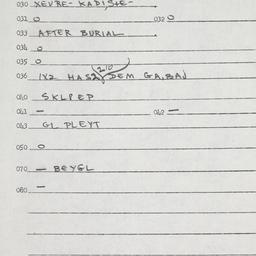 030 XEVRE- KADISHE-
031 O 032 O
033 AFTER BURIAL
034 O
035 O
210
036 1X2 HASZ DEM GA,BAJ
040 SKLPEP
041 — 042 —
043 GL PLEYT
050 O
070 — BEYGL
080 —